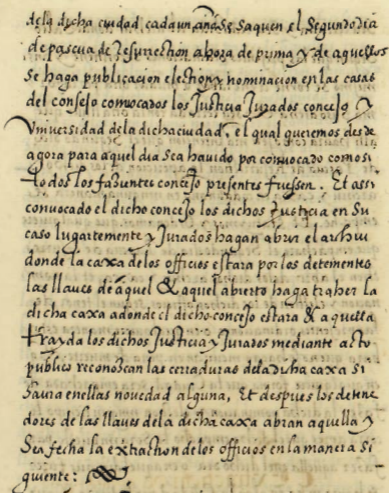 dela dicha ciudad cadaun año se saquen el segundo dia
de pascua de Resurection ahora de prima y de aquellos
se haga publicacion election y nominacion en las casas
del consejo comvocados los Justicia Jurados concejo y
Vniuersidad dela dicha ciudad, el qual queremos desde
agora para aquel dia sea hauido por comvocado como si
todos los fazientes concejo presentes fuessen. Et assi
convocado el dicho concejo los dichos Justicia en su
caso lugartemente y Jurados hagan abrir el archiu
donde la caxa de los officios estara por los detenientes
las llaues de aquel & aquel abierto haga traher la
dicha caxa adonde el dicho concejo estara & aquella
trayda los dichos Justicia y Jurados mediante acto
publico reconozcan las cerraduras dela dicha caxa si
haura en ellas nouedad alguna, Et despues los detene
dores de las llaues dela dicha caxa abran aquella y
sea fecha la extraction de los officios en la manera si
guiente: